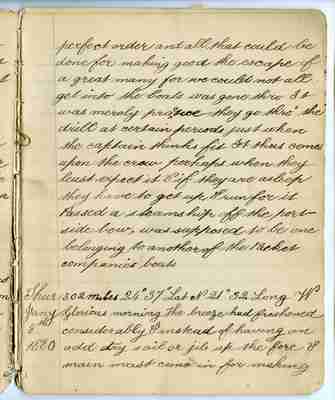 perfect order and all that could be
done for making good the escape of
a great many for we could not all
get into the boats was gone thro It
was merely practice they go thro' the
drill at certain periods just when
the captain thinks fit It thus comes
upon the crew perhaps when they
least expect it & if they are asleep
they have to get up & run for it
Passed a steamship off the port-
side bow, was supposed to be one
belonging to another of the Packet
companies boats
Thur 302 miles 24° 37' Lat N 21° 32 Long W's
Jany Glorious morning the breeze had freshened
8th considerably & instead of having one
1880 odd stay sail or jib up the fore &
main mast came in for making